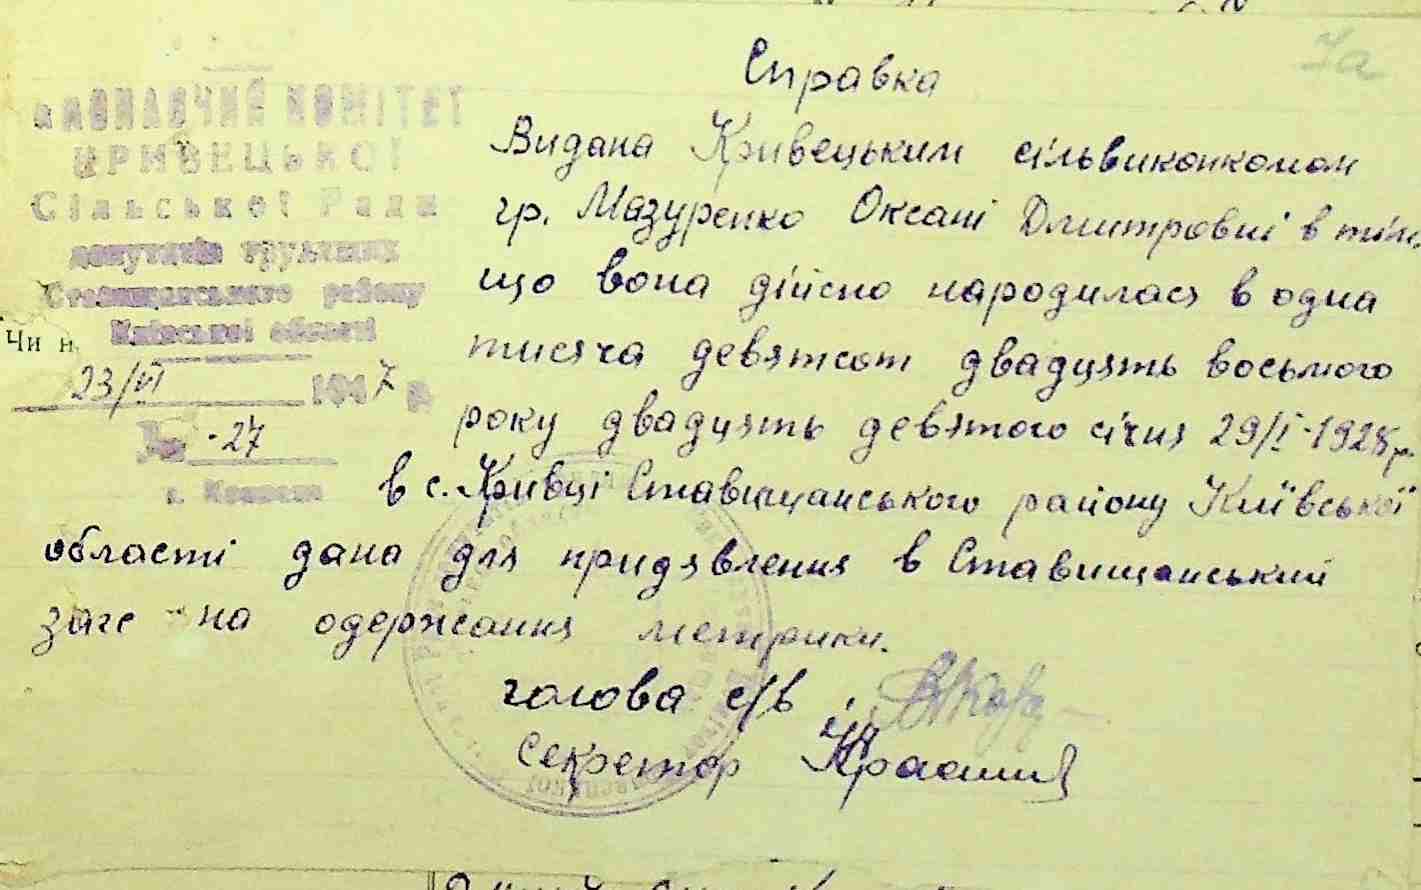 7а
Справка
ВИКОНАВЧИЙ КОМІТЕТ
КРИВЕЦЬКОЇ
Сільської Ради
депутатів трудящих
Ставищанського району
Київської області
Чи н
23/VI 1947 р
№ -27
Видана Кривецьким сільвиконкомом
гр. Мазуренко Оксані Дмитровні в тім,
що вона дійсно народилася в одна
тисяча девятсот двадцять восьмого
року двадцять девятого січня 29/I-1928 р.
в с. Кривці Ставищанського району Київської
області дана для придявлення в Ставищанський
загс на одержання метрики.
голова с/в
секретор